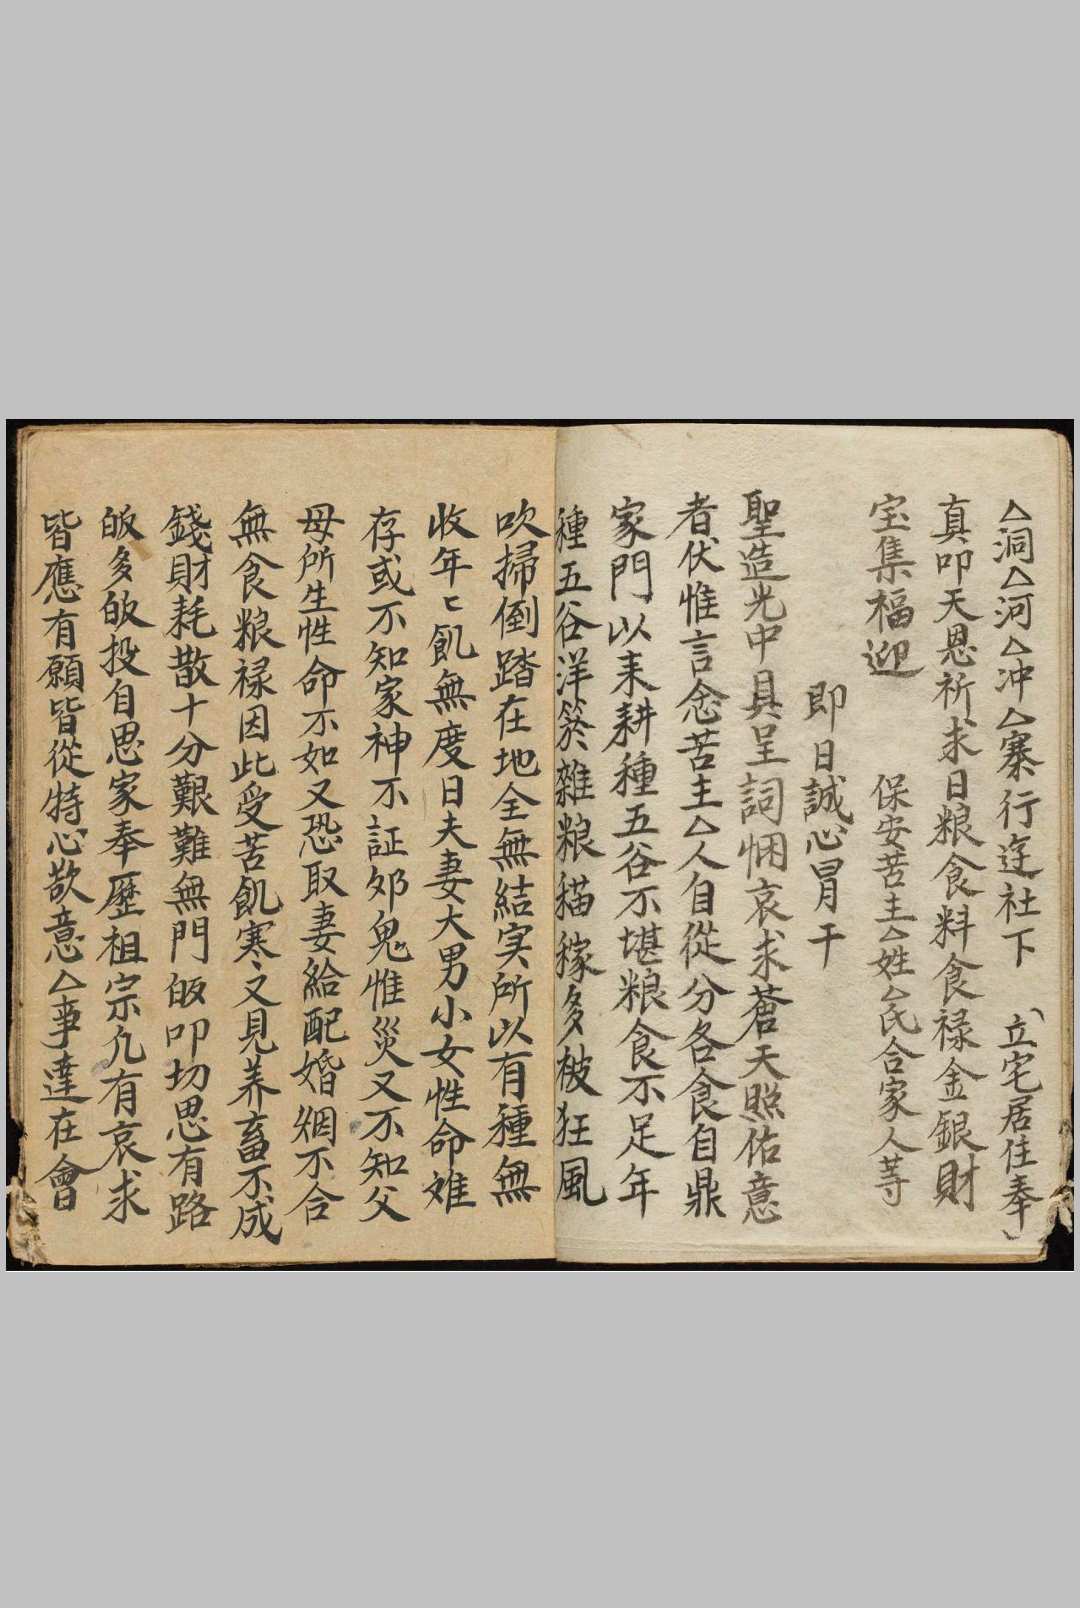 △洞△河△冲△寨行迬社下 立宅居住奉
真叩天恩祈求日粮食料食禄金銀財
宝集福迎 保安苦主△姓△氏合家人等
即日誠心冒干
聖造光中具呈詞悃哀求蒼天照佑意
者伏惟言念苦主△人自從分各食自鼎
家門以来耕種五谷不堪粮食不足年
種五谷洋䇲雜粮猫稼多被狂風
吹掃倒踏在地全無結实所以有種無
收年〻飢無度日夫妻大男小女性命难
存或不知家神不証邜鬼惟災又不知父
母所生性命不如又恐取妻給配婚烟不合
無食粮禄因此受苦飢寒又見养畜不成
錢財耗散十分艱難無門皈叩切思有路
皈多皈投自思家奉歷祖宗凢有哀求
皆應有願皆從特心欲意△事達在會